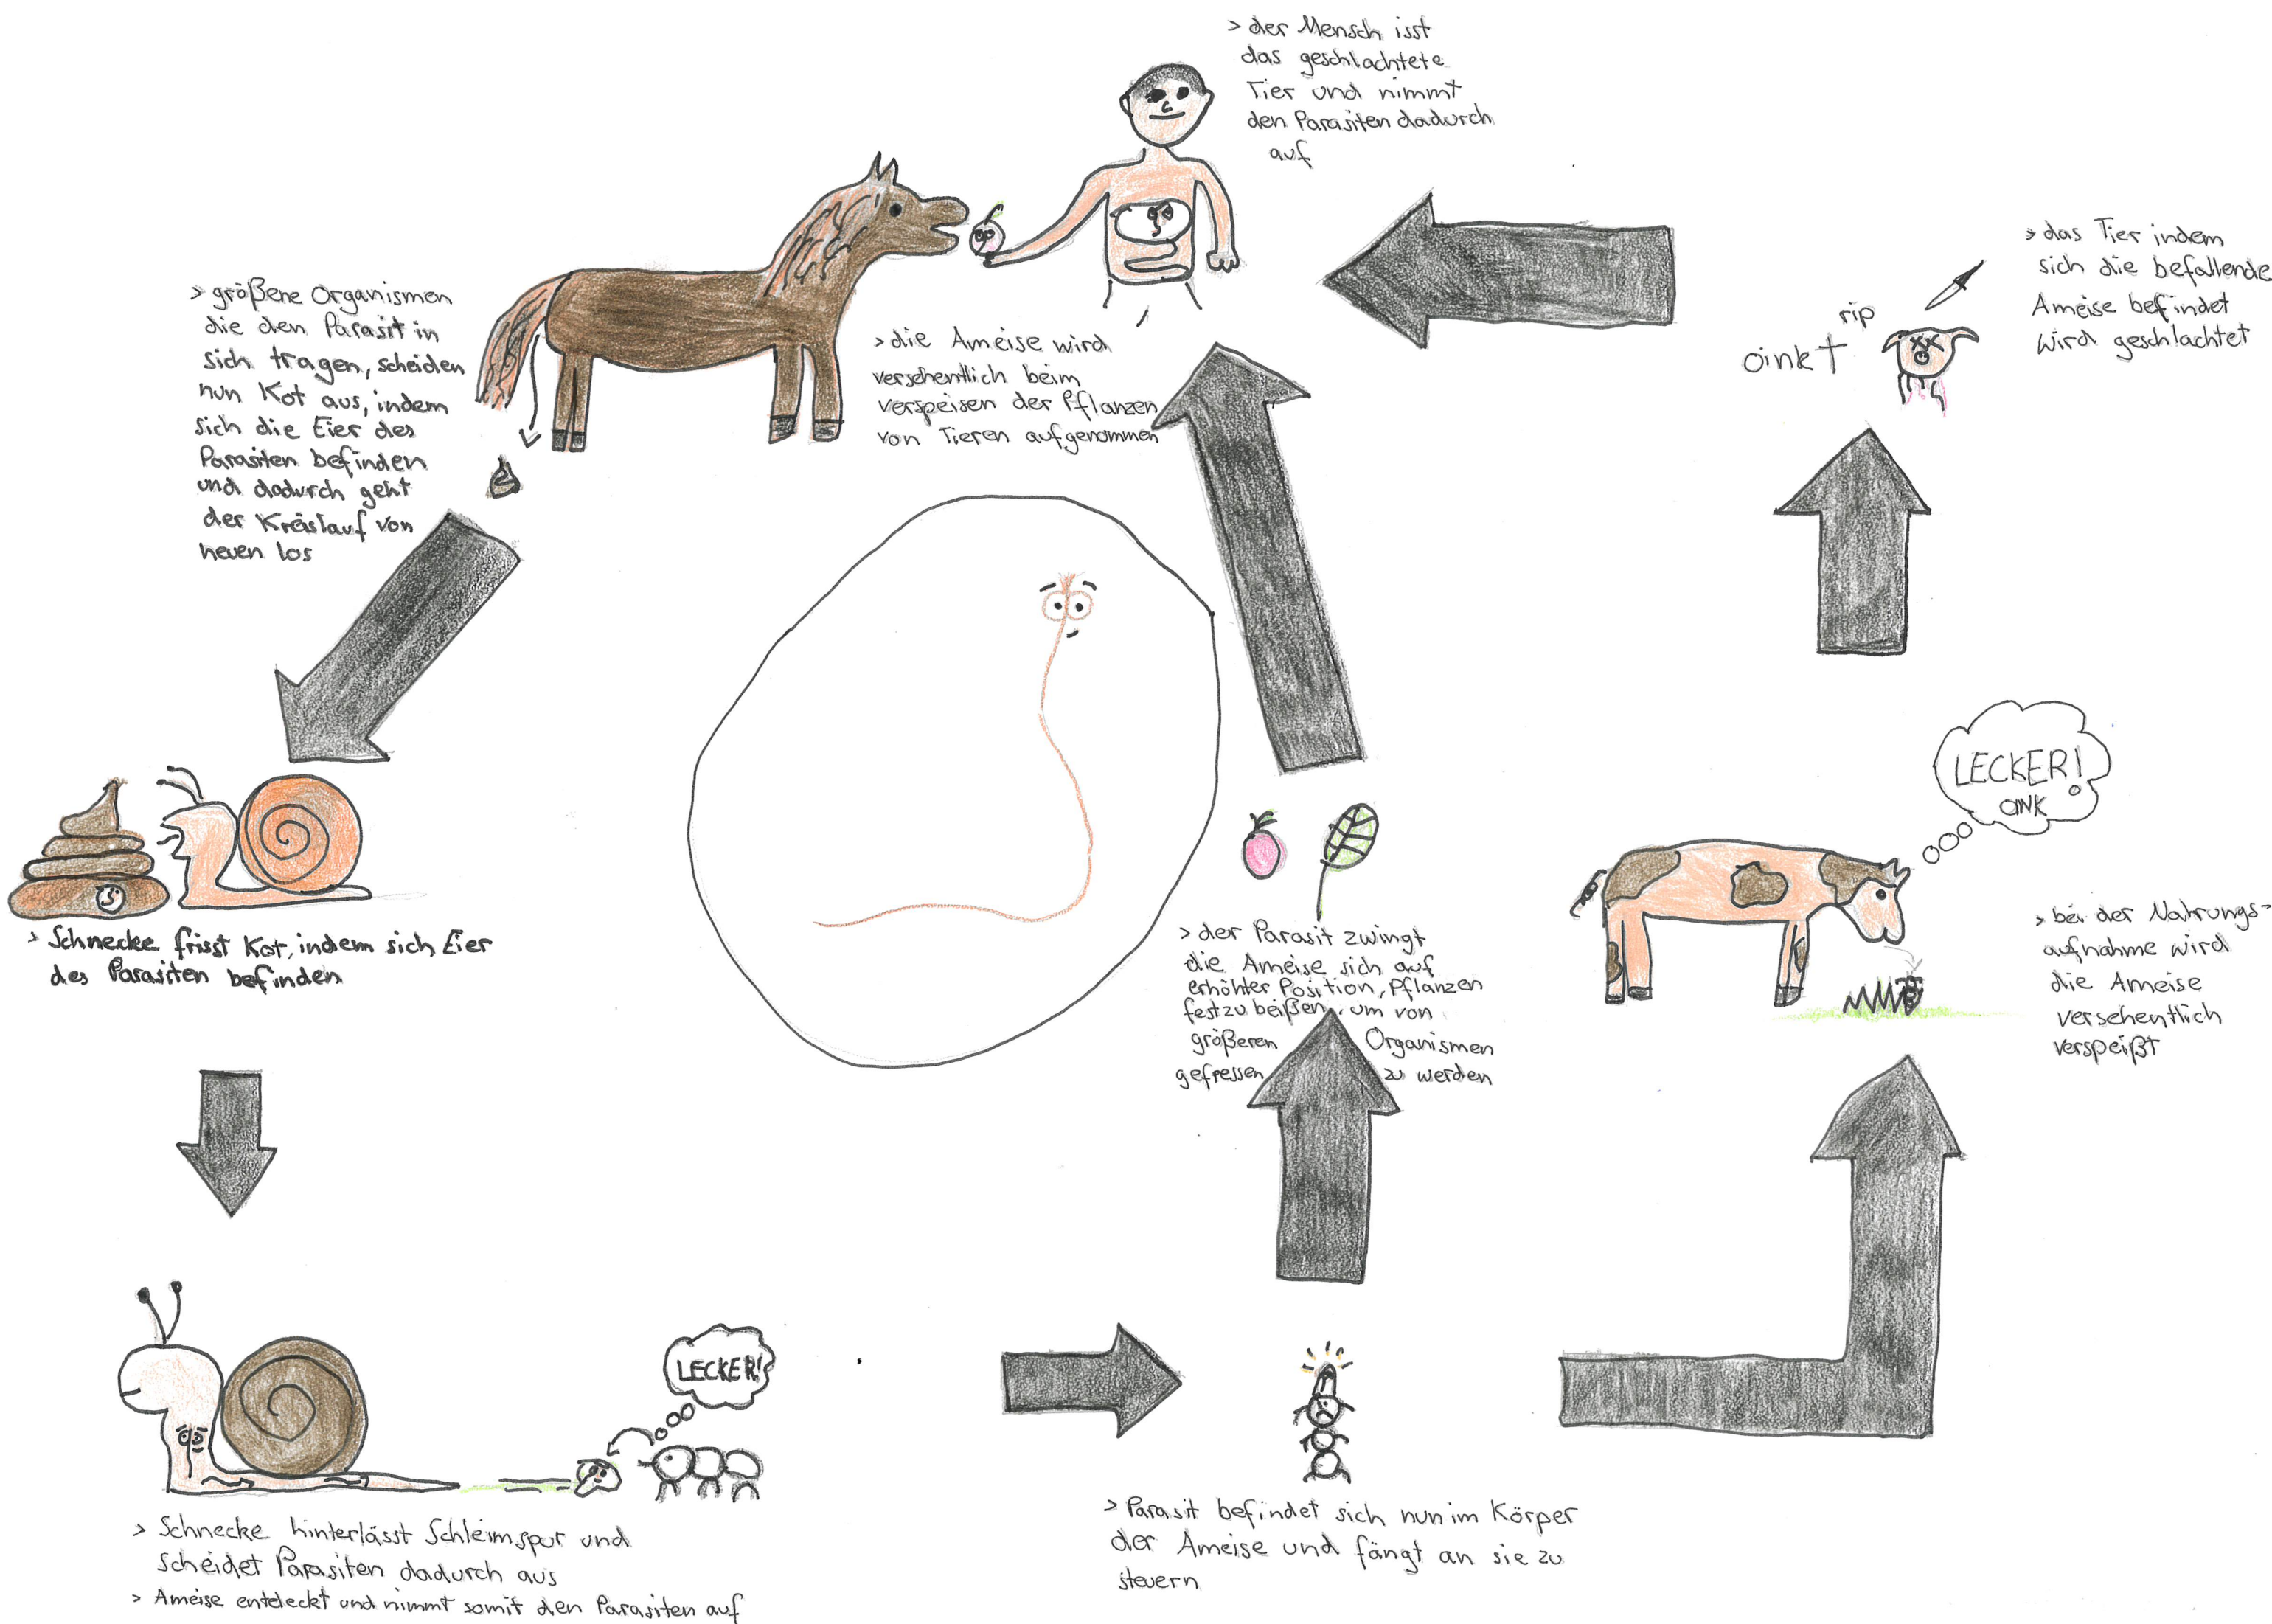 > der Mensch isst
das geschlachtete
Tier und nimmt
den Parasiten dadurch
auf
> das Tier indem
sich die befallende
Ameise befindet
wird geschlachtet
rip
oink †
> größene Organismen
die den Parasit in
sich tragen, scheiden
nun Kot aus, indem
sich die Eier des
Parasiten befinden
und dadurch geht
der Kreislauf von
neuen los
> die Ameise wird
versehentlich beim
verspeisen der Pflanzen
von Tieren aufgenommen
LECKER!
OINK
> bei der Nahrungs-
aufnahme wird
die Ameise
versehentlich
verspeißt
> der Parasit zwingt
die Ameise sich auf
erhöhter Position, Pflanzen
festzu beißen, um von
größeren Organismen
gefressen zu werden
> Schnecke frisst Kot, indem sich Eier
des Parasiten befinden
LECKER!
> Schnecke hinterlässt Schleimspur und
scheidet Parasiten dadurch aus
> Ameise entdeckt und nimmt somit den Parasiten auf
> Parasit befindet sich nun im Körper
der Ameise und fängt an sie zu
steuern